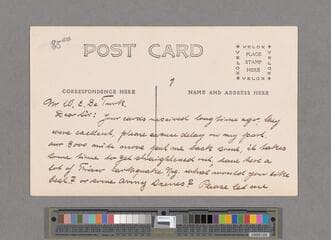 POST CARD
VELOX
PLACE
STAMP
HERE
VELOX
CORRESPONDENCE HERE
NAME AND ADDRESS HERE
Mr W. E. De
Dear Sir: Your cards received long time ago, they
were excellent, please excuse delay in my part.
our 3000 mile move put me back some, it takes
some time to get straightened out, have here a
lot of Earthquake Neg. what would you like
best? or some Army Scenes? Please let me